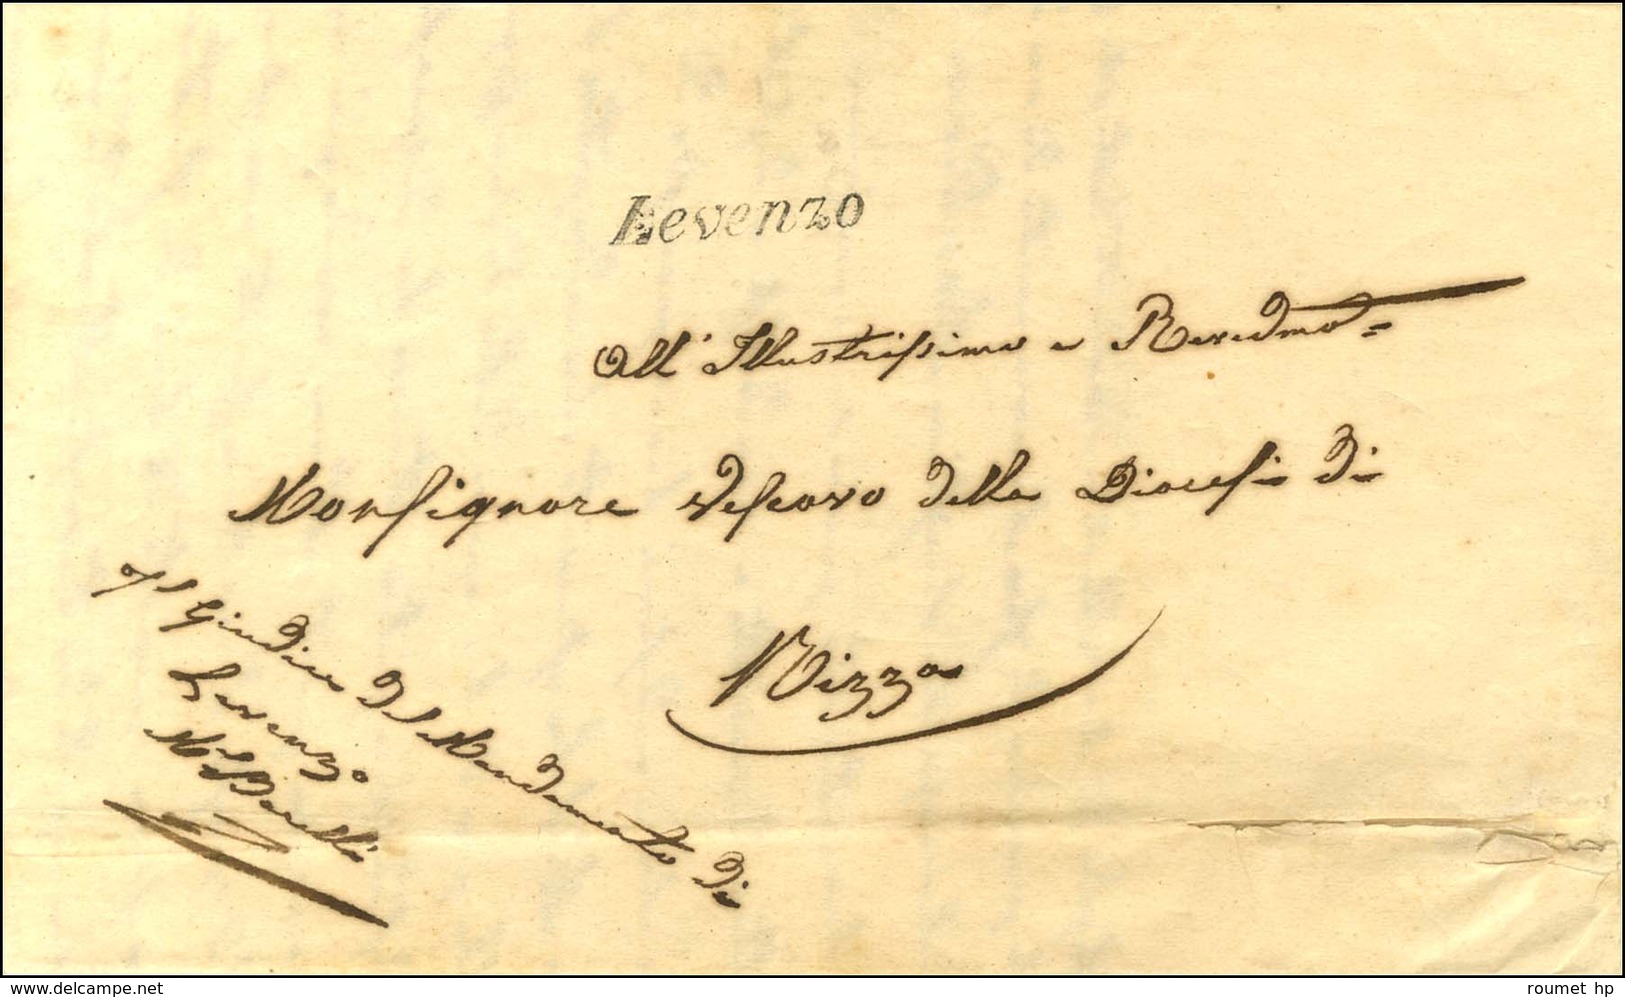 Levenzo
All' Illustrissimo e Revedmo =
Monsignore Vescovo della Diocesi di
Nizza
Il Giudice del Mandamento di
Levenzo
www.delcampe.net
roumet hp